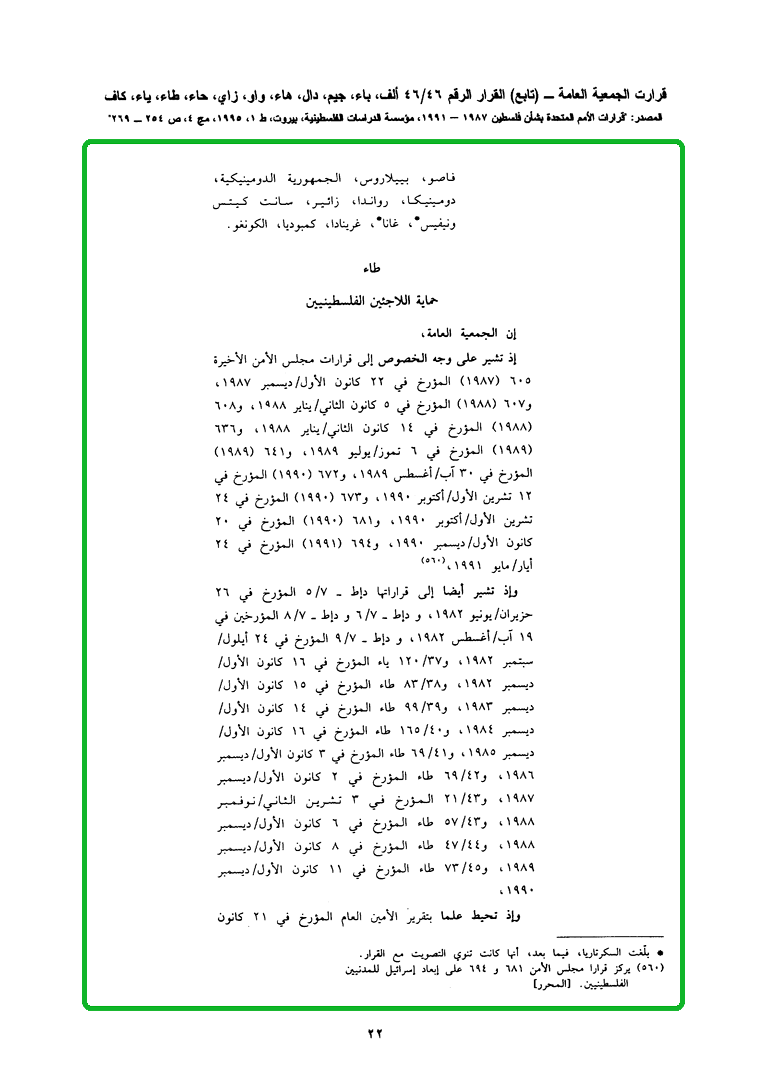 قرارت الجمعية العامة ــ (تابع) القرار الرقم ٤٦/٤٦ ألف، باء، جيم، دال، هاء، واو، زاي، حاء، طاء، ياء، كاف
المصدر: "قرارات الأمم المتحدة بشأن فلسطين ١٩٨٧ – ١٩٩١، مؤسسة الدراسات الفلسطينية، بيروت، ط ١، ١٩٩٥، مج ٤، ص ٢٥٤ – ٢٦٩"
فاصو، بييلاروس، الجمهورية الدومينيكية،
دومينيكا، رواندا، زائير، سانت كيتس
ونيفيس*، غانا*، غرينادا، كمبوديا، الكونغو.
طاء
حماية اللاجئين الفلسطينيين
إن الجمعية العامة،
إذ تشير على وجه الخصوص إلى قرارات مجلس الأمن الأخيرة
٦٠٥ (١٩٨٧) المؤرخ في ٢٢ كانون الأول/ديسمبر ١٩٨٧،
و٦٠٧ (١٩٨٨) المؤرخ في ٥ كانون الثاني/يناير ١٩٨٨، و٦٠٨
(١٩٨٨) المؤرخ في ١٤ كانون الثاني/يناير ١٩٨٨، و٦٣٦
(١٩٨٩) المؤرخ في ٦ تموز/يوليو ١٩٨٩، و٦٤١ (١٩٨٩)
المؤرخ في ٣٠ آب/أغسطس ١٩٨٩، و٦٧٢ (١٩٩٠) المؤرخ في
١٢ تشرين الأول/أكتوبر ١٩٩٠، و٦٧٣ (١٩٩٠) المؤرخ في ٢٤
تشرين الأول/أكتوبر ١٩٩٠، و٦٨١ (١٩٩٠) المؤرخ في ٢٠
كانون الأول/ديسمبر ١٩٩٠، و٦٩٤ (١٩٩١) المؤرخ في ٢٤
أيار/مايو ١٩٩١،(٥٦٠)
وإذ تشير أيضا إلى قراراتها دإط ـ ٥/٧ المؤرخ في ٢٦
حزيران/يونيو ١٩٨٢، و دإط ـ ٦/٧ و دإط ـ ٨/٧ المؤرخين في
١٩ آب/أغسطس ١٩٨٢، و دإط ـ ٩/٧ المؤرخ في ٢٤ أيلول/
سبتمبر ١٩٨٢، و١٢٠/٣٧ ياء المؤرخ في ١٦ كانون الأول/
ديسمبر ١٩٨٢، و٨٣/٣٨ طاء المؤرخ في ١٥ كانون الأول/
ديسمبر ١٩٨٣، و٩٩/٣٩ طاء المؤرخ في ١٤ كانون الأول/
ديسمبر ١٩٨٤، و١٦٥/٤٠ طاء المؤرخ في ١٦ كانون الأول/
ديسمبر ١٩٨٥، و٦٩/٤١ طاء المؤرخ في ٣ كانون الأول/ديسمبر
١٩٨٦، و٦٩/٤٢ طاء المؤرخ في ٢ كانون الأول/ديسمبر
١٩٨٧، و٢١/٤٣ المؤرخ في ٣ تشرين الثاني/نوفمبر
١٩٨٨، و٥٧/٤٣ طاء المؤرخ في ٦ كانون الأول/ديسمبر
١٩٨٨، و٤٧/٤٤ طاء المؤرخ في ٨ كانون الأول/ديسمبر
١٩٨٩، و٧٣/٤٥ طاء المؤرخ في ١١ كانون الأول/ديسمبر
١٩٩٠،
وإذ تحيط علما بتقرير الأمين العام المؤرخ في ٢١ كانون
* بلّغت السكرتاريا، فيما بعد، أنها كانت تنوي التصويت مع القرار.
(٥٦٠) يركز قرارا مجلس الأمن ٦٨١ و ٦٩٤ على إبعاد إسرائيل للمدنيين
الفلسطينيين. [المحرر]
٢٢